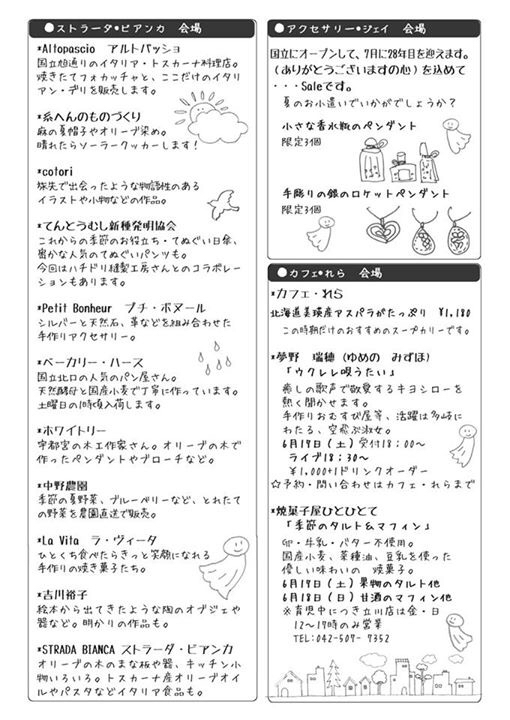 ●ストラーダ•ビアンカ 会場
*Altopascio アルトパッショ
国立旭通りのイタリア・トスカーナ料理店。
焼きたてフォカッチャと、ここだけのイタリ
アン・デリを販売します。
*糸へんのものづくり
麻の夏帽子やオリーブ染め。
晴れたらソーラークッカーします!
*cotori
旅先で出会ったような物語性のある
イラストや小物などの作品。
*てんとうむし新種発明協会
これからの季節のお役立ち・てぬぐい日傘、
密かな人気のてぬぐいパンツも。
今回はハチドリ縫製工房さんとのコラボレー
ションもあります。
*Petit Bonheur プチ・ボヌール
シルバーと天然石、革などを組み合わせた
手作りアクセサリー。
*ベーカリー・ハース
国立北口の人気のパン屋さん。
天然酵母と国産小麦で丁寧に作っています。
土曜日の11時頃入荷します。
*ホワイトリー
宇都宮の木工作家さん。オリーブの木で
作ったペンダントやブローチなど。
*中野農園
季節の夏野菜、ブルーベリーなど、とれたて
の野菜を農園直送で販売。
*La Vita ラ・ヴィータ
ひとくち食べたらきっと笑顔になれる
手作りの焼き菓子たち。
*吉川裕子
絵本から出てきたような陶のオブジェや
器など。明かりの作品も。
*STRADA BIANCA ストラーダ・ビアンカ
オリーブの木のまな板や器、キッチン小
物いろいろ。トスカーナ産オリーブオイ
ルやパスタなどイタリア食品も。
●アクセサリー•ジェイ 会場
国立にオープンして、7月に28年目を迎えます。
(ありがとうございますの心)を込めて
・・・Saleです。
夏のお小遣いでいかがでしょうか?
小さな香水瓶のペンダント
限定3個
手彫りの銀のロケットペンダント
限定3個
●カフェ•れら 会場
*カフェ・れら
北海道美瑛産アスパラがたっぷり ¥1,180
この時期だけのおすすめのスープカリーです。
*夢野 瑞穂(ゆめの みずほ)
「ウクレレ唄うたい」
癒しの歌声で敬愛するキヨシローを
熱く聞かせます。
手作りおむすび屋等、活躍は多岐に
わたる、空飛ぶ淑女。
6月17日(土)受付18:00〜
ライブ18:30〜
¥1,000+1ドリンクオーダー
☆予約・問い合わせはカフェ・れらまで
*焼菓子屋ひとひとて
「季節のタルト&マフィン」
卵・牛乳・バター不使用。
国産小麦、菜種油、豆乳を使った
優しい味わいの 焼菓子。
6月17日(土)果物のタルト他
6月18日(日)甘酒のマフィン他
※育児中につき立川店は金・日
12〜17時のみ営業
TEL:042-507-7352